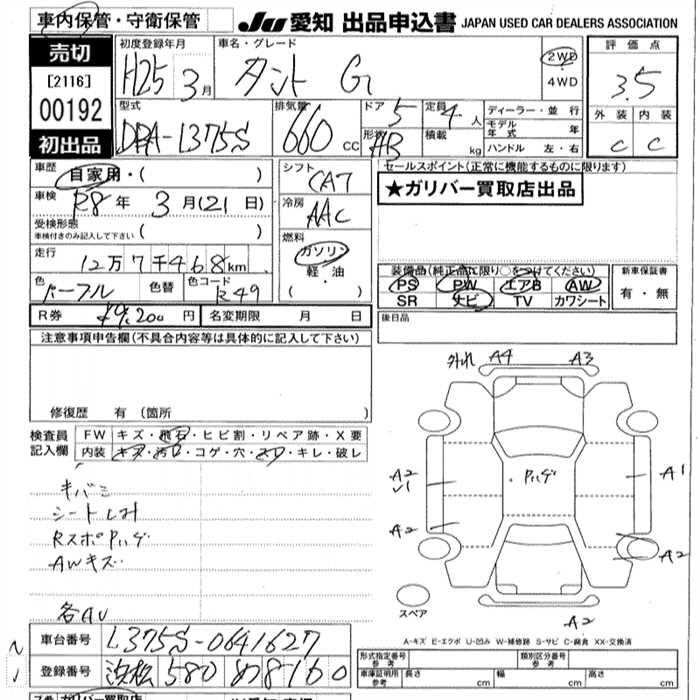 車内保管・守衛保管
JU 愛知 出品申込書 JAPAN USED CAR DEALERS ASSOCIATION
売切
[2116]
00192
初出品
初度登録年月
H25 3月
車名・グレード
タント G
2WD
・
4WD
評価点
3.5
外装 内装
C C
型式
DBA-L375S
排気量
660 cc
ドア 5
形状 HB
定員 4 人
積載 kg
ディーラー・並行
モデル年式 年
ハンドル 左・右
車歴
自家用・( )
車検
R8年 3月(21日)
受検形態
車検付きのみ記入して下さい ( )
走行
12万7千468km
色
パープル
色替
色コード
シフト
CAT
冷房
AAC
燃料
ガソリン
軽・油
( )
セールスポイント(正常に機能するものに限ります)
★ガリバー買取店出品
装備品(純正品に限り○をつけてください)
PS PW エアB AW
SR ナビ TV カワシート
新車保証書
有・無
R券 ¥9,200円 名変期限 月 日
後日品
注意事項申告欄(不具合内容等は具体的に記入して下さい)
修復歴 有(箇所 )
検査員
記入欄
FW キズ・飛石・ヒビ割・リペア跡・X要
内装 キズ・汚れ・コゲ・穴・スレ・キレ・破レ
キバミ
シートしみ
RスポPハゲ
AWキズ
各AU
外れ A4 A3
A2
U1
Pハゲ
A1
A2
A2
A2
スペア
A-キズ E-エクボ U-凹み W-補修跡 S-サビ C-腐食 XX-交換済
車台番号 L375S-0641627
登録番号 浜松 580
形式指定番号
参考
類別区分番号
参考
車庫証明用
参考
長さ cm 幅 cm 高さ cm
ガリバー買取店